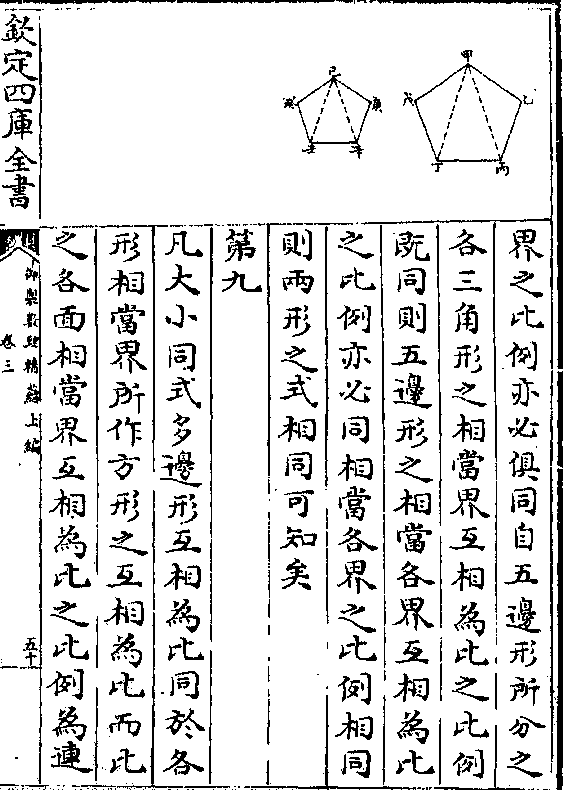 甲
乙
丙
丁
戊
己
庚
辛
壬
癸
界之比例亦必俱同自五邊形所分之
各三角形之相當界互相為比之比例
既同則五邊形之相當各界互相為比
之比例亦必同相當各界之比例相同
則兩形之式相同可知矣
第九
凡大小同式多邊形互相為比同於各
形相當界所作方形之互相為比而比
之各面相當界互相為比之比例為連
欽定四庫全書
御製數理精蘊上編
卷三
五十